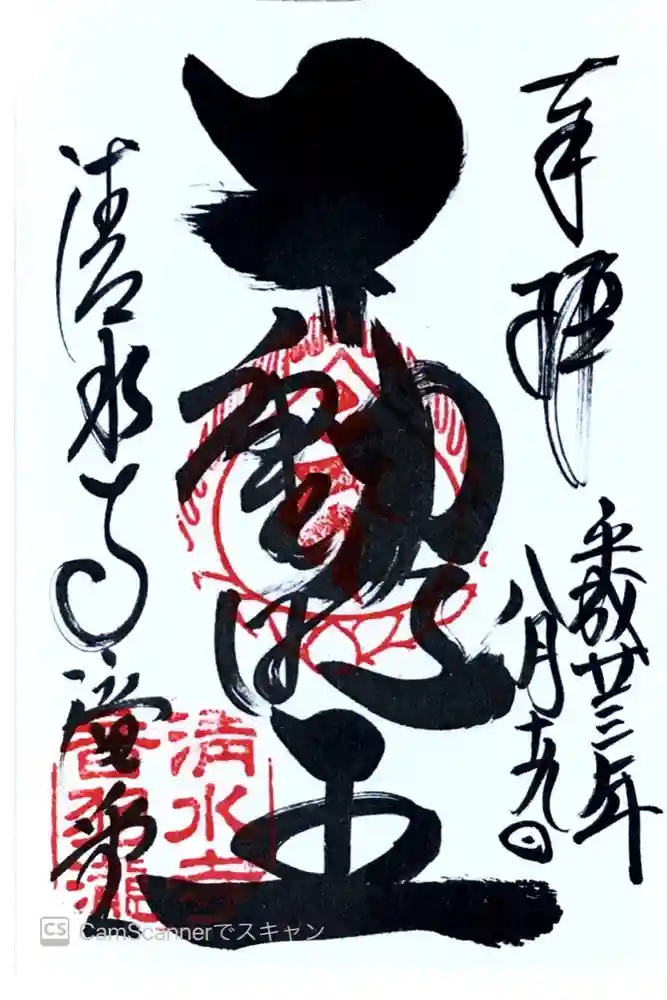 奉拝
平成廿三年
八月十九日
不動明王
清水寺
清水寺
音羽瀧
CS CamScannerでスキャン